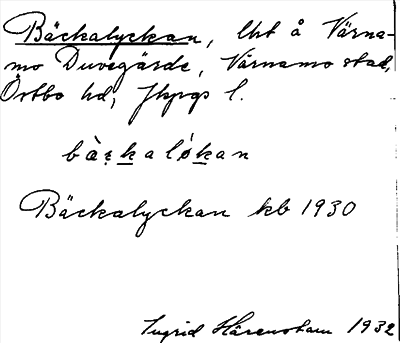 Bäckalyckan, lht å Värna-
mo Duvegärde, Värnamo stad,
Östbo hd, Jkpgs l.
bàkkaløkan
Bäckalyckan kb 1930
Ingrid Härenstam 1932